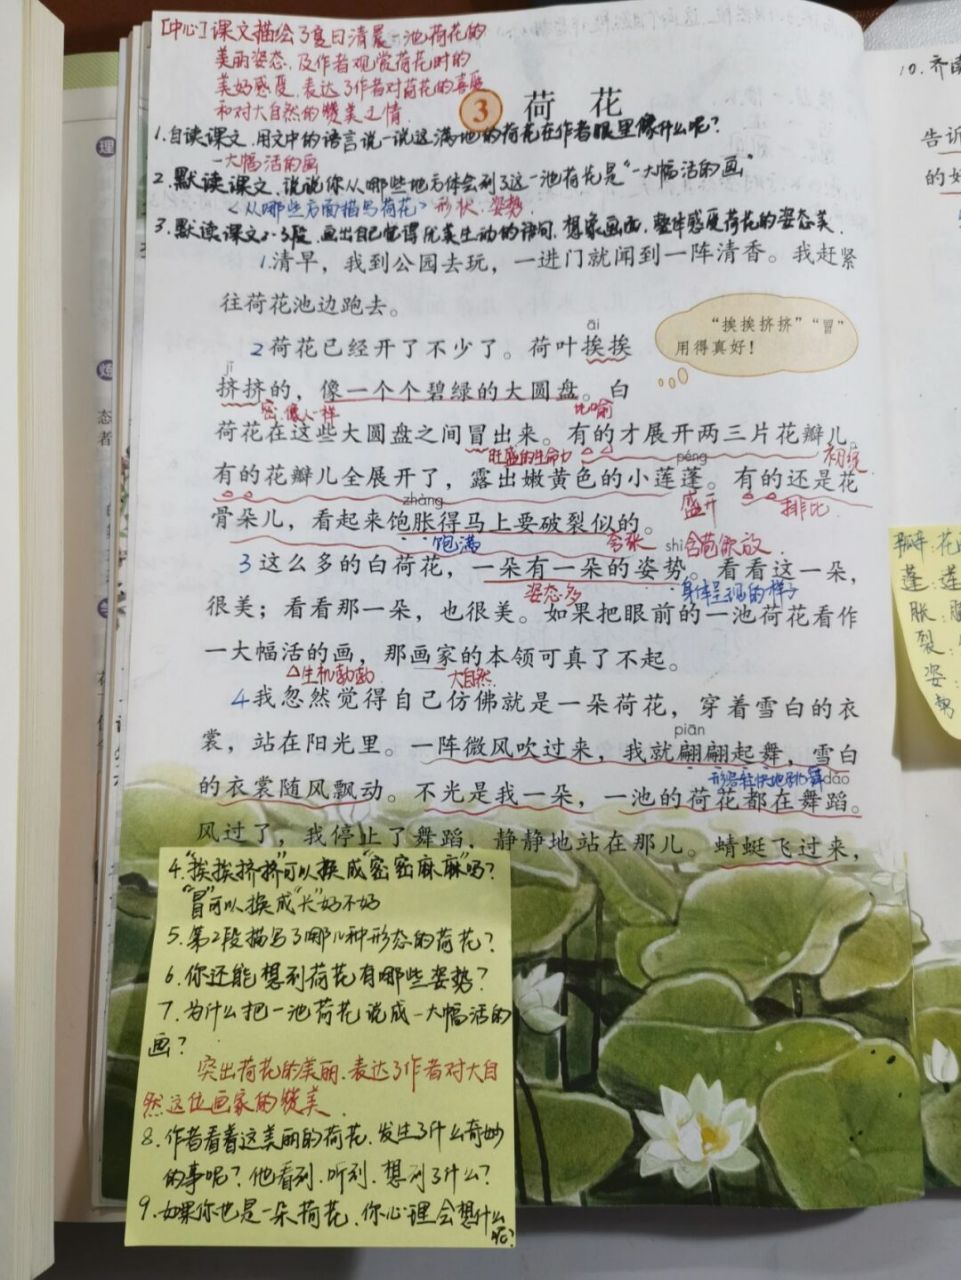 [中心]课文描绘了夏日清晨一池荷花的
美丽姿态,及作者观赏荷花时的
美好感受,表达了作者对荷花的喜爱
和对大自然的赞美之情.
3 荷花
1.自读课文,用文中的语言说一说这满池的荷花在作者眼里像什么呢?
一大幅活的画
2.默读课文,说说你从哪些地方体会到了这一池荷花是"一大幅活的画"
<从哪些方面描写荷花> 形状.姿势.
3.默读课文2-3段,画出自己觉得优美生动的语句,想象画面,整体感受荷花的姿态美.
1.清早,我到公园去玩,一进门就闻到一阵清香。我赶紧
往荷花池边跑去。
āi
2荷花已经开了不少了。荷叶挨挨
"挨挨挤挤""冒"
用得真好!
jǐ
挤挤的,像一个个碧绿的大圆盘。白
密.像人一样
比喻
荷花在这些大圆盘之间冒出来。有的才展开两三片花瓣儿。
旺盛的生命力
péng
初绽
有的花瓣儿全展开了,露出嫩黄色的小莲蓬。有的还是花
zhàng
盛开
排比
骨朵儿,看起来饱胀得马上要破裂似的。
饱满
夸张
shì
含苞欲放.
3这么多的白荷花,一朵有一朵的姿势。看看这一朵,
姿态多
身体呈现的样子
很美;看看那一朵,也很美。如果把眼前的一池荷花看作
一大幅活的画,那画家的本领可真了不起。
生机勃勃
大自然
4我忽然觉得自己仿佛就是一朵荷花,穿着雪白的衣
裳,站在阳光里。一阵微风吹过来,我就翩翩起舞,雪白
piān
形容轻快地跳舞
dǎo
的衣裳随风飘动。不光是我一朵,一池的荷花都在舞蹈。
风过了,我停止了舞蹈,静静地站在那儿。蜻蜓飞过来,
4."挨挨挤挤"可以换成"密密麻麻"吗?
"冒"可以换成"长"好不好
5.第2段描写了哪几种形态的荷花?
6.你还能想到荷花有哪些姿势?
7.为什么把一池荷花说成一大幅活的
画?
突出荷花的美丽.表达了作者对大自
然这位画家的赞美.
8.作者看着这美丽的荷花.发生了什么奇妙
的事呢?他看到.听到.想到了什么?
9.如果你也是一朵荷花.你心理会想什么
呢?
10.齐读
告诉
的好
瓣:花
蓬:莲
胀:
裂:
姿:
势
理
态
者